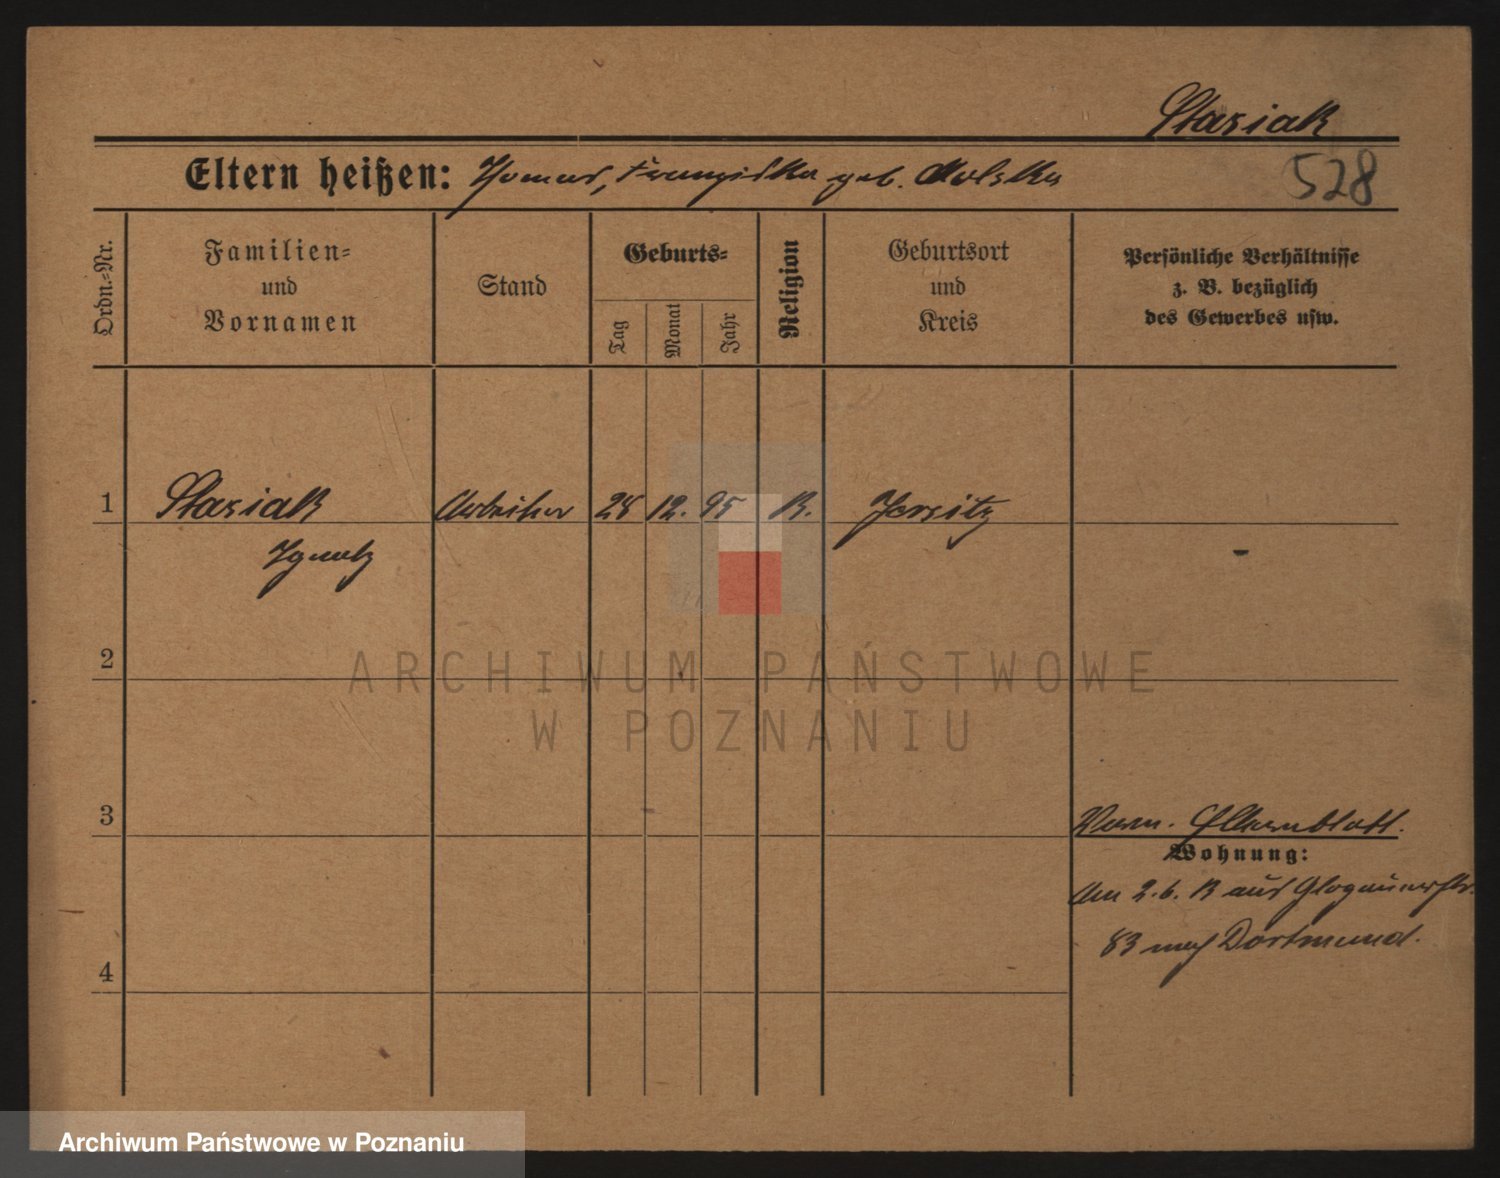 Stasiak
Eltern heißen: Thomas, Franziska geb. Molska
528
Ordn.-Nr.
Familien-
und
Vornamen
Stand
Geburts-
Tag
Monat
Jahr
Religion
Geburtsort
und
Kreis
Persönliche Verhältnisse
z. B. bezüglich
des Gewerbes usw.
1 Stasiak Arbeiter 28 12. 95 K. Jersitz
Ignatz
2
ARCHIWUM PAŃSTWOWE
W POZNANIU
3
Elternblatt.
Wohnung:
Am 2.6. 13 aus Glogauerstr.
83 nach Dortmund.
4
Archiwum Państwowe w Poznaniu